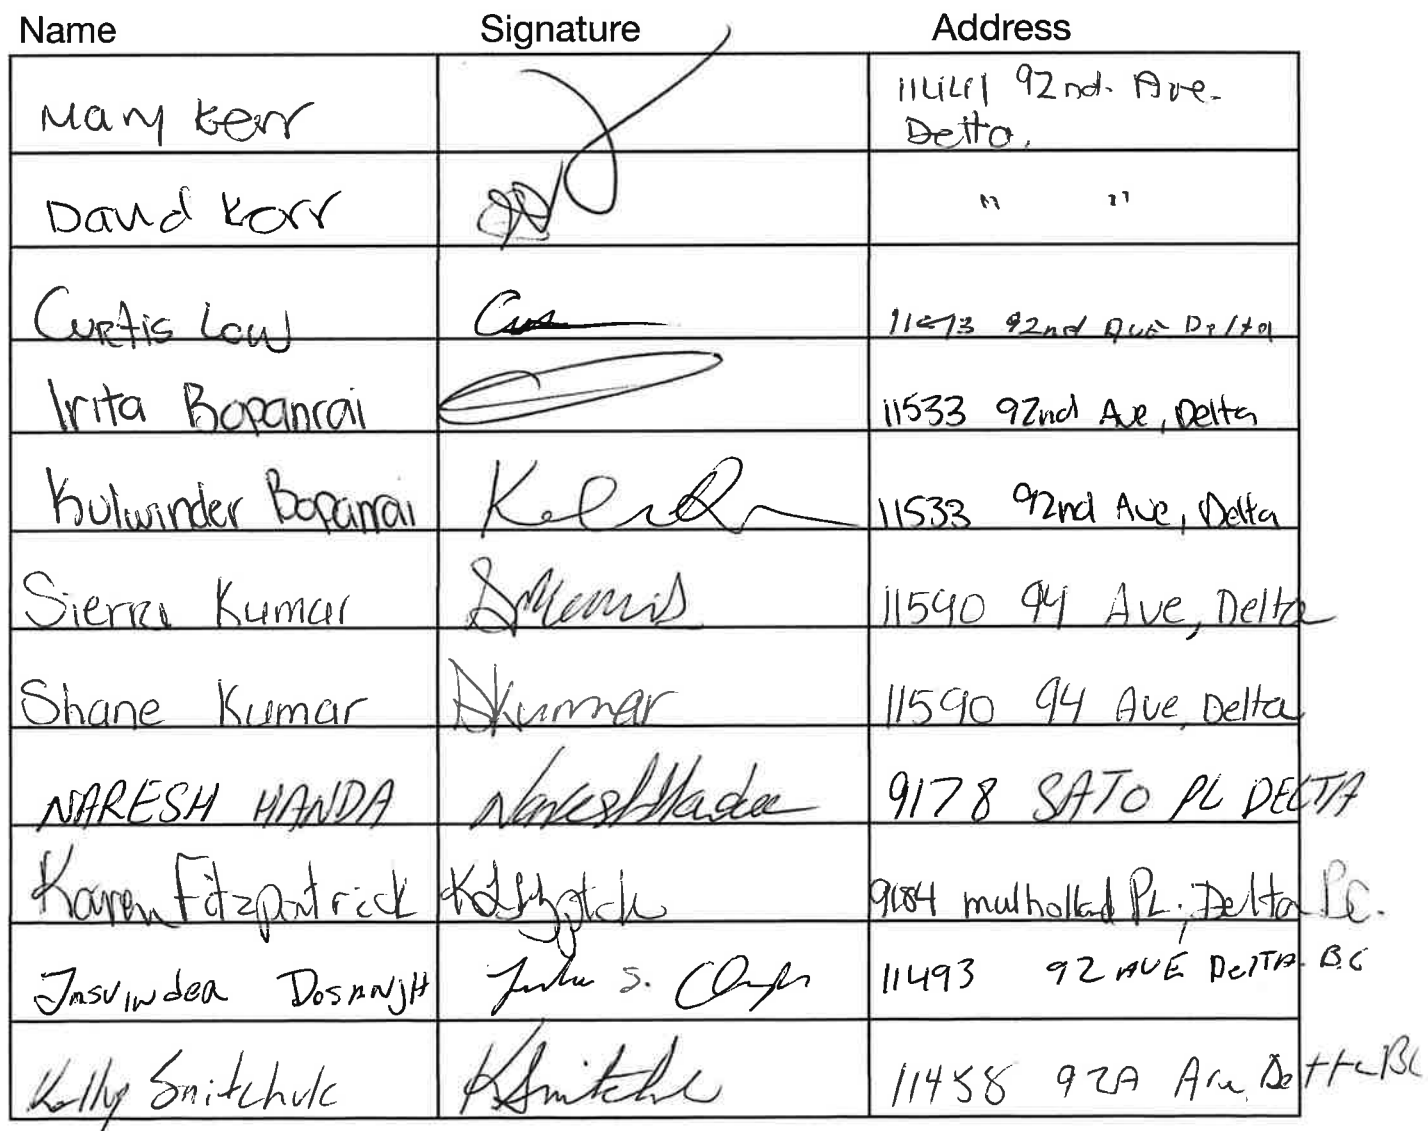 Name Signature Address
Mary Kerr 11441 92nd. Ave.
Delta.
David Kerr " "
Curtis Low 92nd Ave Delta
Irita Bopanrai 11533 92nd Ave, Delta
Kulwinder Bopanrai 11533 92nd Ave, Delta
Sierra Kumar 11590 94 Ave, Delta
Shane Kumar SKumar 11590 94 Ave, Delta
NARESH HANDA Naresh Handa 9178 SATO PL DELTA
Karen Fitzpatrick 9184 mulholland PL., Delta BC.
Jasvinder DOSANJH 11493 92 AVE DELTA BC
Kelly Snitchuk KSnitchuk 11458 92A Ave Delta BC